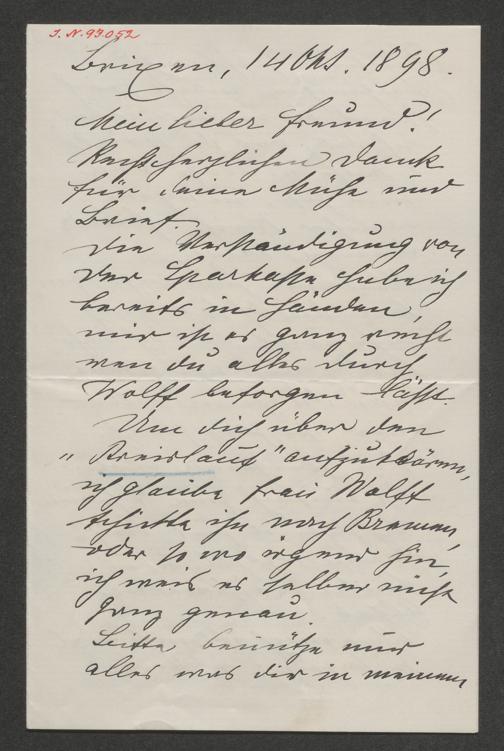 J. N. 97.052
Brixen, 14 Okt. 1898.
Mein lieber Freund!
Recht herzlichen Dank
für deine Mühe und
Brief.
Die Verständigung von
der Sparkasse habe ich
bereits in Händen,
mir ist es ganz recht
wen du alles durch
Wolff besorgen läßt.
Um dich über den
„Kreislauf" aufzuklären,
ich glaube Frau Wolff
schickte ihn nach Bremen,
oder so wo irgend hin,
ich weis es selber nicht
ganz genau.
Bitte benütze nur
alles was dir in meinem